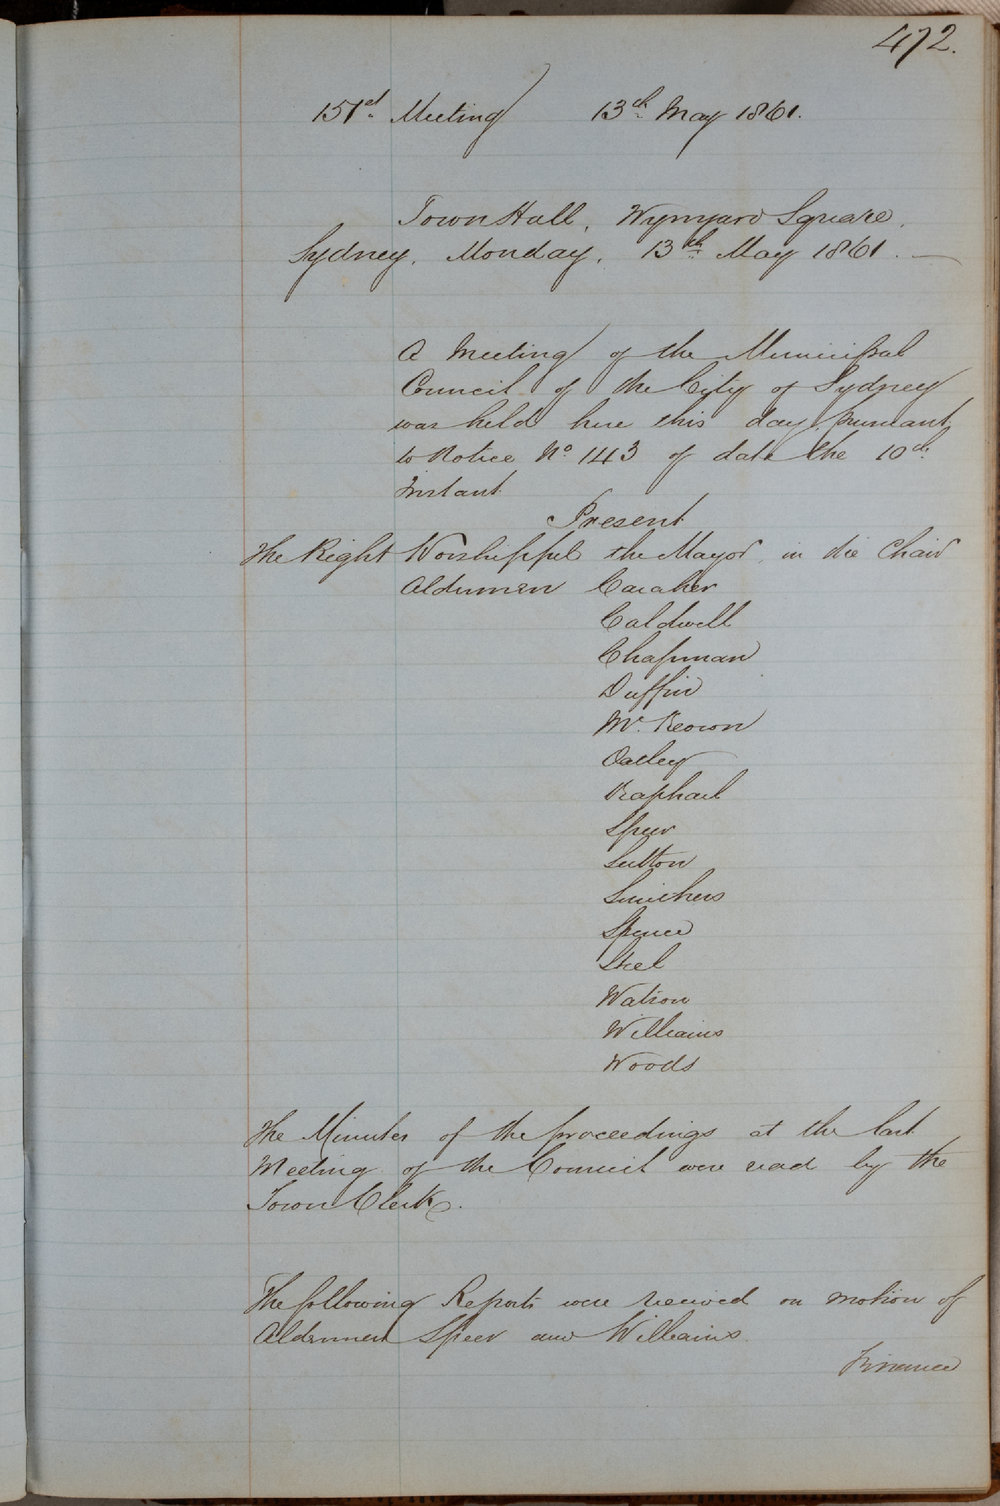 472.
151st Meeting 13th May 1861.
Town Hall, Wynyard Square,
Sydney, Monday, 13th May 1861. —
A Meeting of the Municipal
Council of the City of Sydney
was held here this day pursuant
to Notice No. 143 of date the 10th
Instant
Present
The Right Worshipful the Mayor, in the Chair
Aldermen Caraher
Caldwell
Chapman
Duffin
Mc. Keown
Oatley
Raphael
Speer
Sutton
Smithers
Spence
Steel
Watson
Williams
Woods
The Minutes of the proceedings at the last
Meeting of the Council were read by the
Town Clerk.
The following Reports were received on motion of
Aldermen Speer and Williams.
Finance